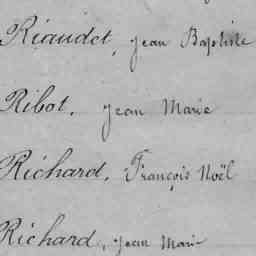 Riaudet, Jean Baptiste
Ribot, Jean Marie
Richard, François Noël
Richard, Jean Marie